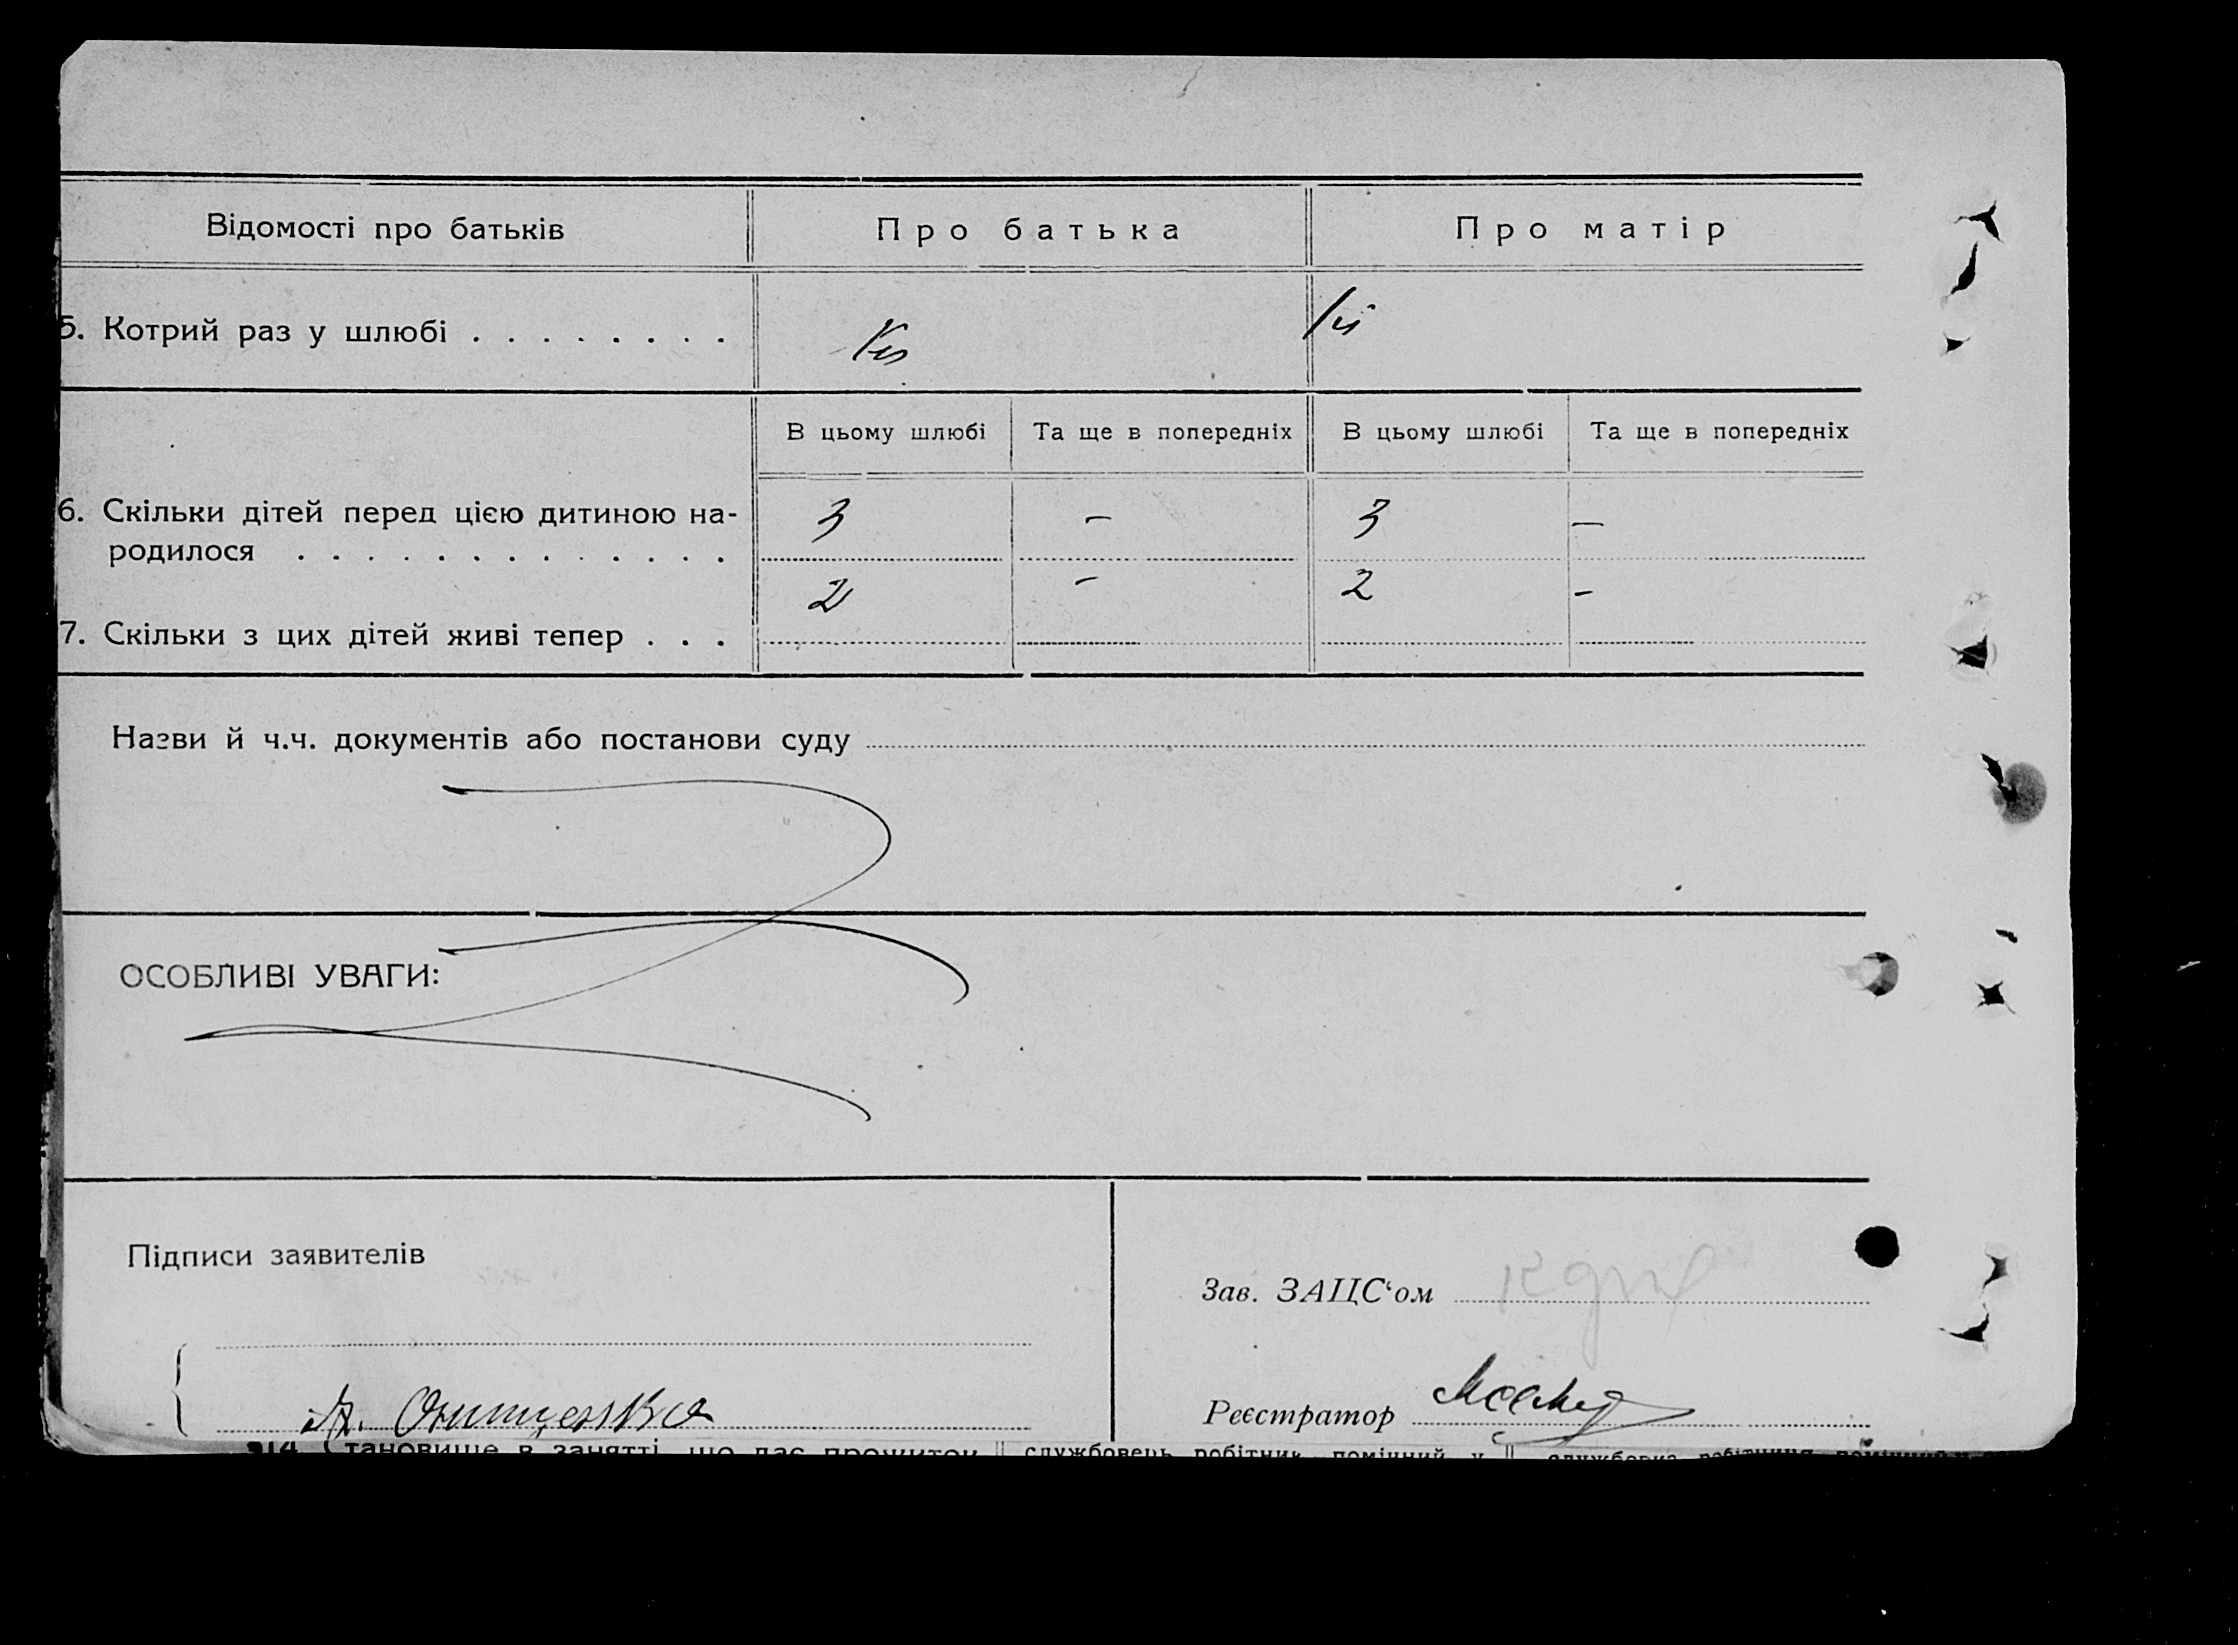 Відомості про батьків Про батька Про матір
5. Котрий раз у шлюбі . . . . . . . . 1й
В цьому шлюбі Та ще в попередніх В цьому шлюбі Та ще в попередніх
6. Скільки дітей перед цією дитиною на- 3 – 3 –
родилося . . . . . . . . . . . . .
7. Скільки з цих дітей живі тепер . . . 2 – 2 –
Назви й ч.ч. документів або постанови суду
ОСОБЛИВІ УВАГИ:
Підписи заявителів
Зав. ЗАЦС‘ом
А. Онищенко
Реєстратор
становище в занятті, що дає прожиток службовець робітник помічний у